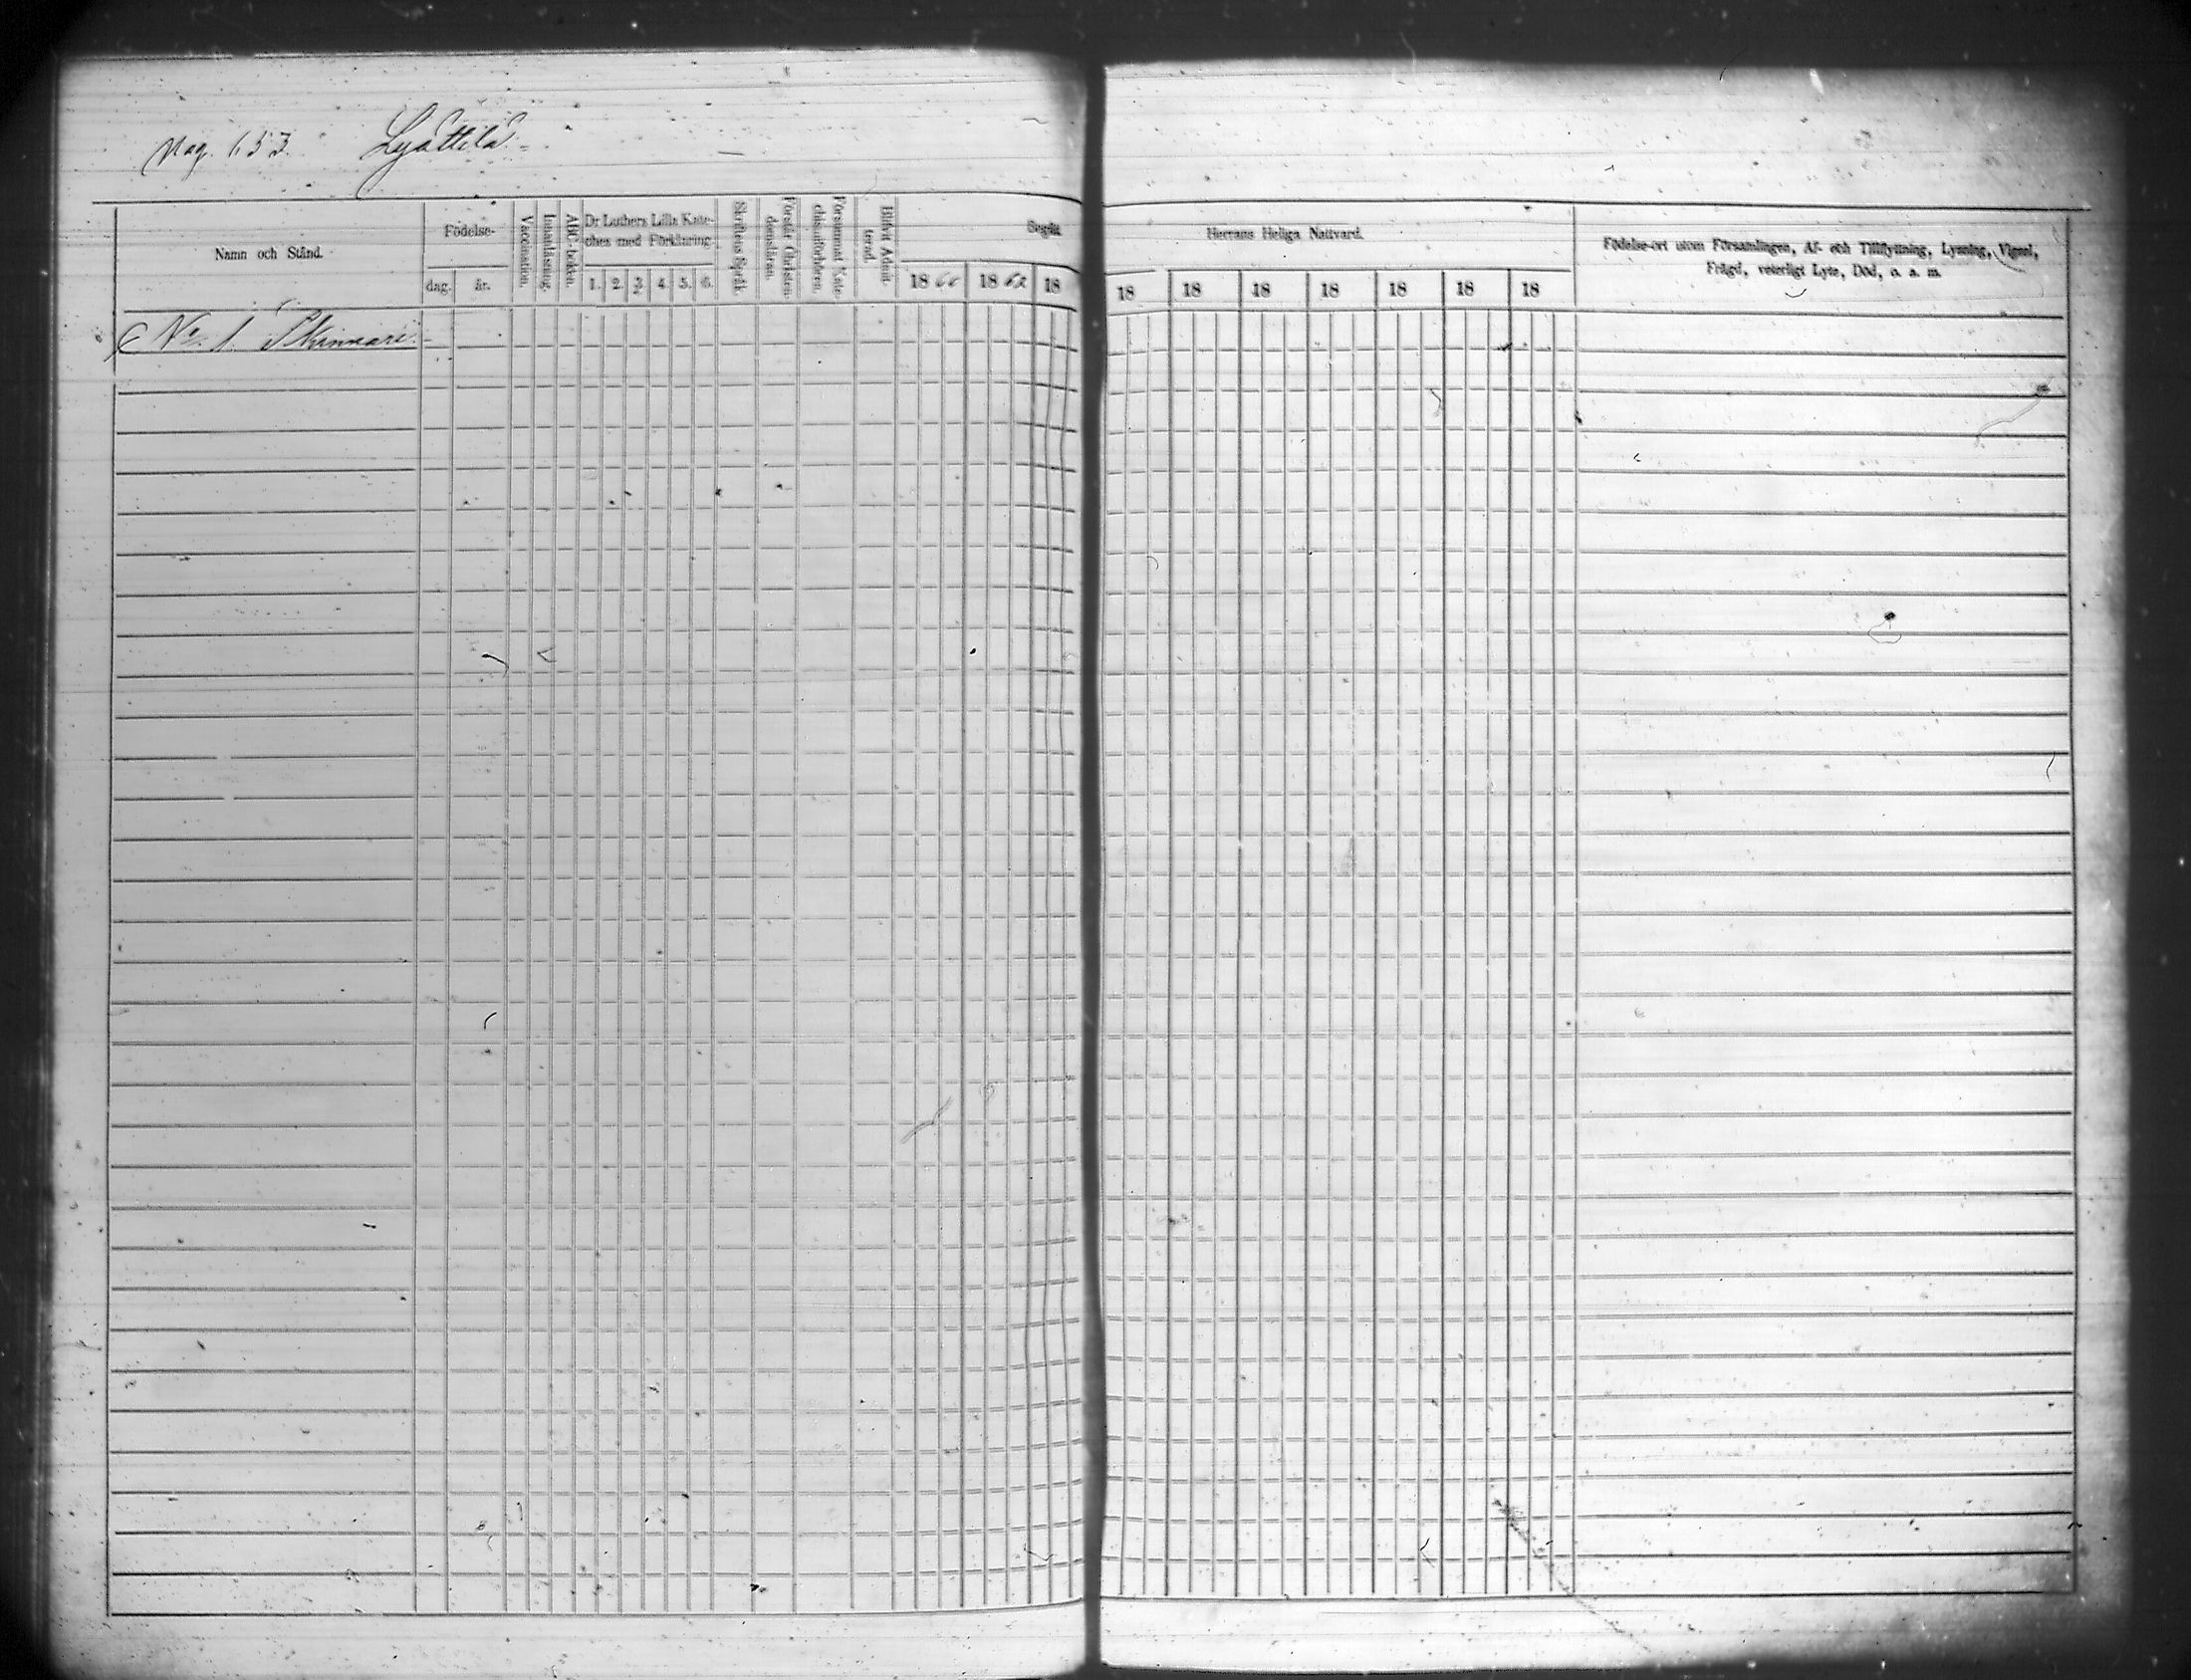 Pag. 153. Lyöttilä
Namn och Stånd.
Födelse-
dag. år.
Vaccination.
Innanläsning.
ABC-boken.
Dr Luthers Lilla Kate-
ches med Förklaring.
1. 2. 3. 4. 5. 6.
Skriftens Språk.
Förstår Christen-
domsläran.
Försummat Kate-
chismiförhören.
Blifvit Admit-
terad.
Begått
18 18 62 18
Herrans Heliga Nattvard.
18 18 18 18 18 18 18
Födelse-ort utom Församlingen, Af- och Tillflyttning, Lysning, Vigsel,
Frägd, veterligt Lyte, Död, o. a. m.
No. 1. Skinnari.